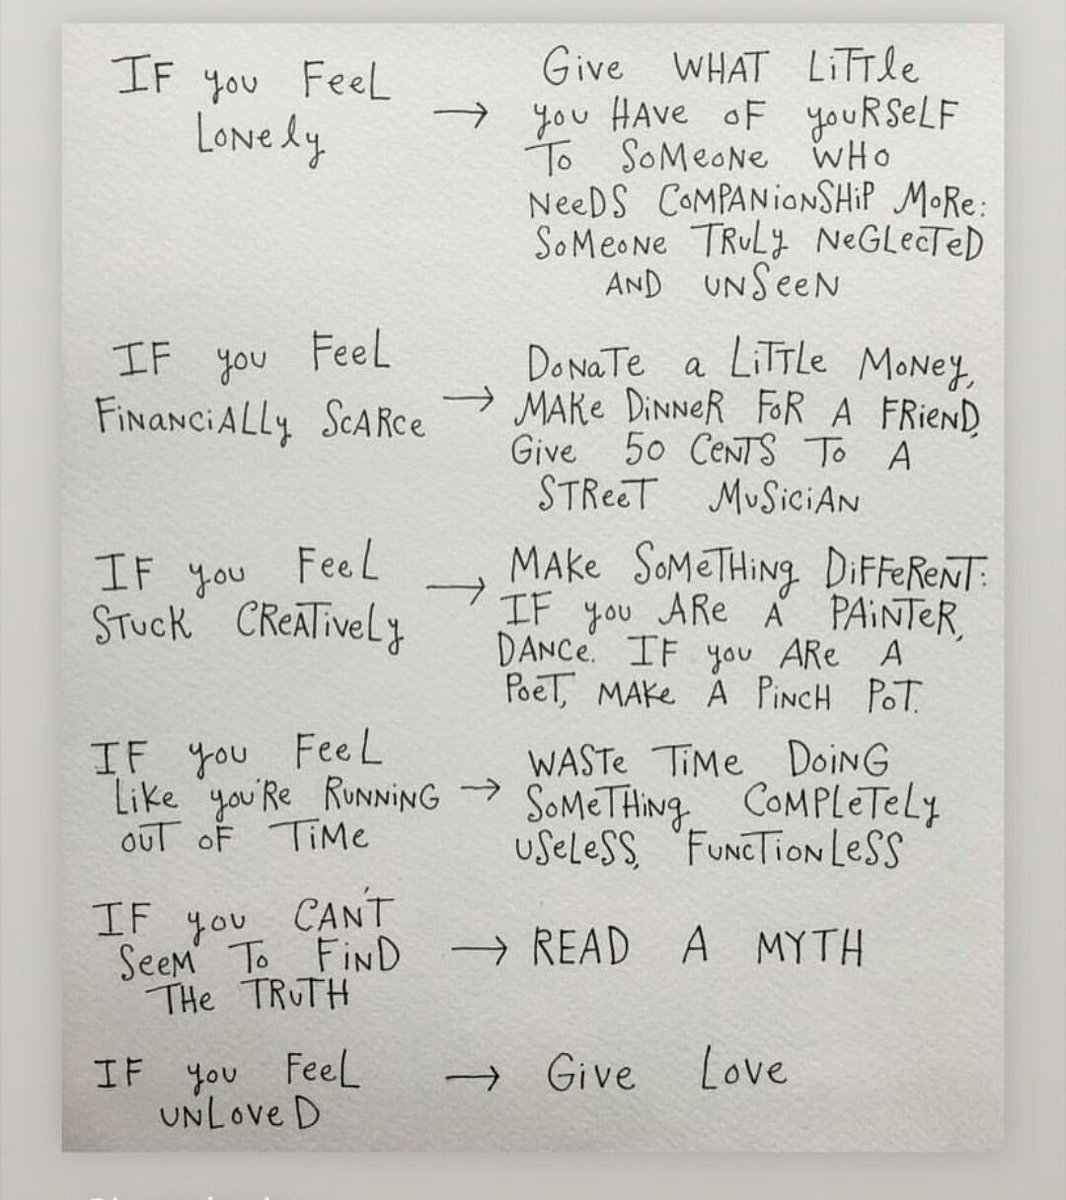 IF you FeeL
LoNely
→
Give WHAT LiTTle
you HAve oF youRSeLF
To SoMeoNe WHo
NeeDS CoMPANioNSHiP MoRe:
SoMeoNe TRuLy NeGLecTeD
AND uNSeeN
IF you FeeL
FiNanciALLy ScARce
→
DoNaTe a LiTTLe MoNey,
MAKe DiNNeR FoR A FRieND,
Give 50 CeNTS To A
STReeT MuSiciAN
IF you FeeL
STuck CReATiveLy
→
MAKe SoMeTHiNg DiFFeReNT:
IF you ARe A PAiNTeR,
DANce. IF you ARe A
PoeT, MAKe A PiNCH PoT.
IF you FeeL
Like you'Re RuNNiNG
ouT oF TiMe
→
WASTe TiMe DoiNG
SoMeTHiNg CoMPLeTeLy
uSeLeSS, FuNcTioNLeSS
IF you CAN'T
SeeM To FiND
THe TRuTH
→ READ A MYTH
IF you FeeL
uNLoveD
→ Give Love